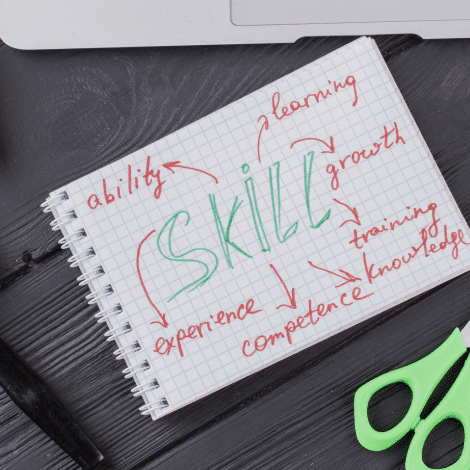 learning
ability
growth
SKiLL
training
knowledge
experience
competence